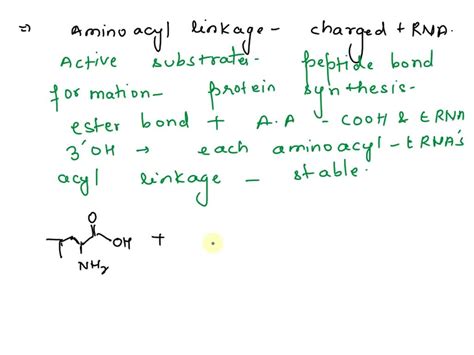 ⇒ Aminoacyl linkage - charged tRNA.
Active substrates - peptide bond
formation - protein synthesis -
ester bond + A.A - COOH & tRNA
3'OH → each aminoacyl - tRNA's
acyl linkage - stable.
O
OH +
NH2